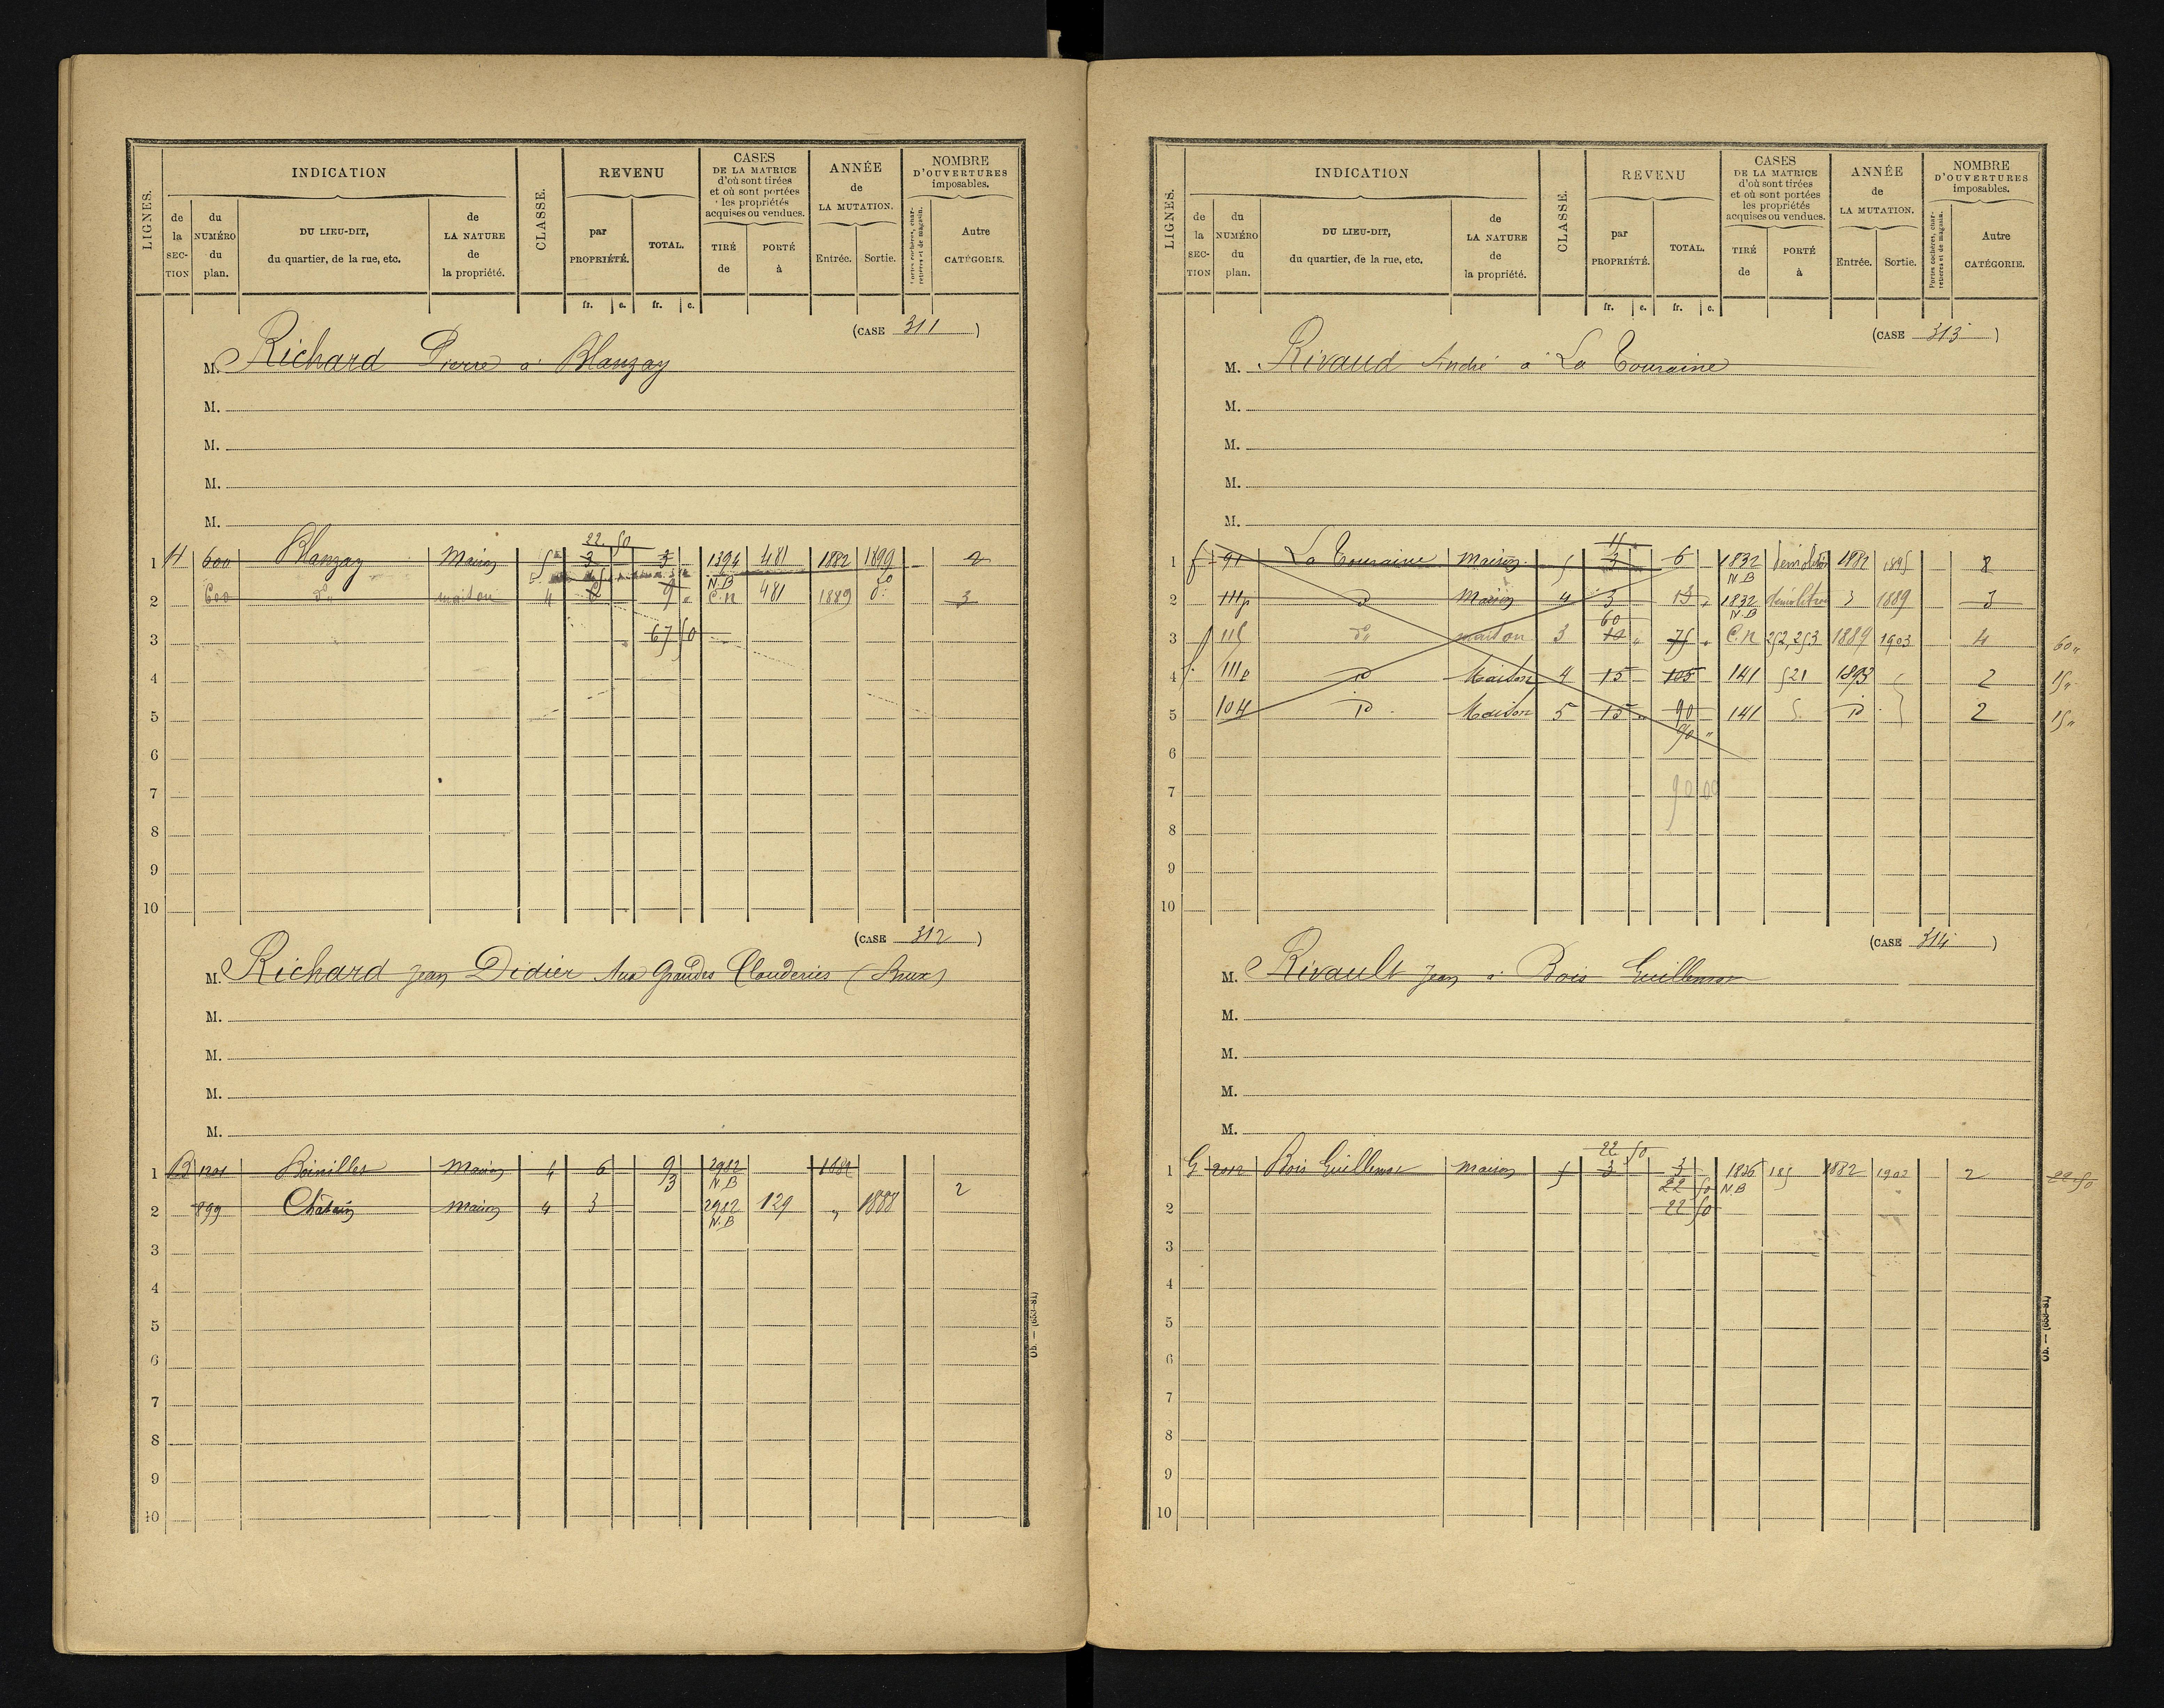 LIGNES. INDICATION CLASSE. REVENU CASES DE LA MATRICE d'où sont tirées et où sont portées les propriétés acquises ou vendues. ANNÉE de LA MUTATION. NOMBRE D'OUVERTURES imposables.
de la SECTION du NUMÉRO du plan. DU LIEU-DIT, du quartier, de la rue, etc. de LA NATURE de la propriété. par PROPRIÉTÉ. TOTAL. TIRÉ de PORTÉ à Entrée. Sortie. Portes cochères, charretières et de magasin. Autre CATÉGORIE.
fr. c. fr. c.
(CASE 311)
M. Richard Pierre à Blanzay
M.
M.
M.
M.
22 50
1 H 600 Blanzay Maison 5 3 3 1394 N.B 481 1882 1899 2
2 600 do maison 4 9 C.n 481 1889 do 3
3 67 50
4
5
6
7
8
9
10
(CASE 312)
M. Richard Jean Didier Aux Grandes Clouderies (Brux)
M.
M.
M.
M.
1 B 1201 Maison 4 6 9 2982 N.B 1882
3
2 899 Maison 4 3 2982 N.B 129 " 1888 2
3
4
5
6
7
8
9
10
Ob. — (653-81)
LIGNES. INDICATION CLASSE. REVENU CASES DE LA MATRICE d'où sont tirées et où sont portées les propriétés acquises ou vendues. ANNÉE de LA MUTATION. NOMBRE D'OUVERTURES imposables.
de la SECTION du NUMÉRO du plan. DU LIEU-DIT, du quartier, de la rue, etc. de LA NATURE de la propriété. par PROPRIÉTÉ. TOTAL. TIRÉ de PORTÉ à Entrée. Sortie. Portes cochères, charretières et de magasin. Autre CATÉGORIE.
fr. c. fr. c.
(CASE 313)
M. Rivaud André à La Touraine
M.
M.
M.
M.
15
1 f 91 La Touraine Maison 5 3 6 1832 N.B demolition 1882 1895 2
2 111p d Maison 4 3 13 1832 N.B demolition 1889 3
60
3 f 115 do maison 3 75 C.n 252, 253 1889 1903 4 60 "
4 f 111p d Maison 4 15 105 141 521 1893 2 15 "
5 104 d Maison 5 15 90 141 d 2 15 "
90 "
6
7 90 00
8
9
10
(CASE 314)
M. Rivault Jean à Bois Guillemot
M.
M.
M.
M.
22 50
1 G 2012 Bois Guillemot Maison 5 3 3 1836 N.B 185 1882 1902 2 22.50
22 50
2 22 50
3
4
5
6
7
8
9
10
Ob. — (653-81)